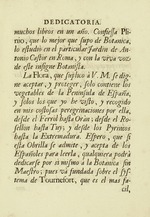 DEDICATORIA:
muchos libros en un año. Confiessa Pli-
nio, que lo mejor que supo de Botanica,
lo estudió en el particular Jardin de An-
tonio Castor en Roma, y con la viva voz
de este insigne Botanista.
La Flora, que suplico à V. M. se dig-
ne aceptar, y proteger, solo contiene los
vegetables de la Peninsula de España,
y solos los que yo he visto, y recogido
en mis costosas peregrinaciones por ella,
desde el Ferrol hasta Oràn; desde el Ro-
sellon hasta Tuy; y desde los Pyrineos
hasta la Extremadura. Espero, que si
esta Obrilla se admite, y acepta de los
Españoles para leerla, qualquiera podrá
dedicarse por sì mismo à la Botanica sin
Maestro; pues và fundada sobre el sys-
tema de Tournefort, que es el mas fa-
cil,